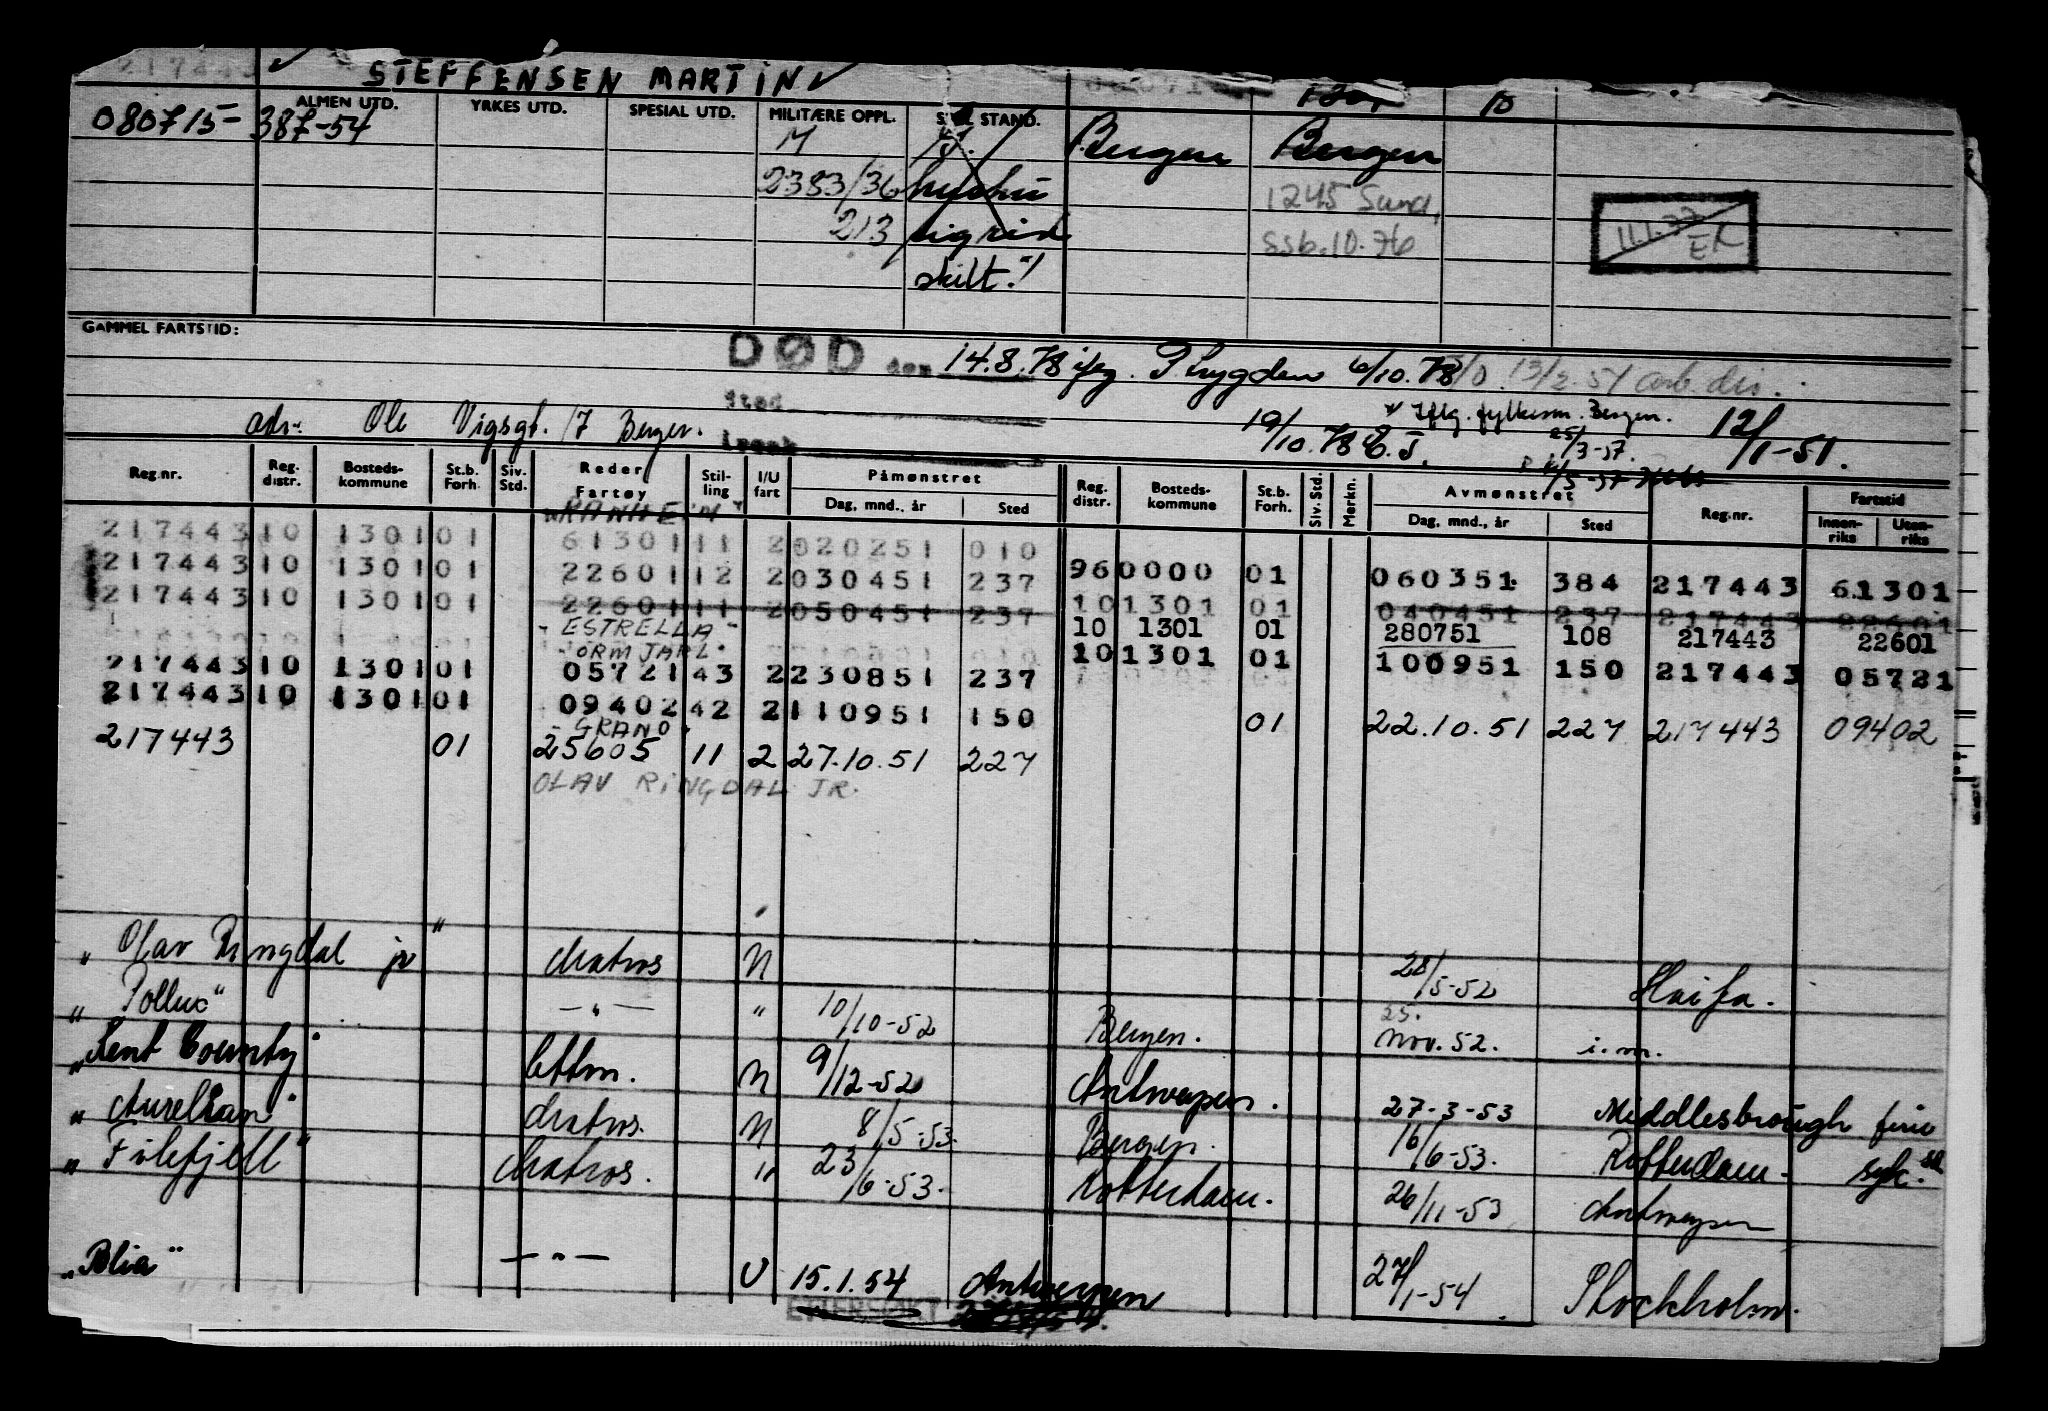 217443 STEFFENSEN MARTIN 1301 10
ALMEN UTD. YRKES UTD. SPESIAL UTD. MILITÆRE OPPL. STAND.
080715- 387-54 M Bergen Bergen
2383/36 hustru 1245 Sund,
213 sigrid SSb.10.76
skilt.
ER
GAMMEL FARTSTID:
DØD den 14.8.78 iflg. Trygden 6/10.78 13/2.51 arb.dir.
Sted
adr: Ole Vigsgt. 17 Bergen. 19/10.78 E.J. Iflg. fylkesm. Bergen. 25/3-57. 12/1-51.
Reg.nr. Reg. distr. Bosteds-kommune St.b. Forh. Siv. Std. Reder Fartøy Stil-ling I/U fart Påmønstret Dag, mnd., år Sted Reg. distr. Bosteds-kommune St.b. Forh. Siv. Std. Merkn. Avmønstret Dag, mnd., år Sted Reg.nr. Fartstid Innen-riks Uten-riks
"RANHEIM"
217443 10 1301 01 61301 11 2 020251 010
217443 10 1301 01 22601 12 2 030451 237 96 0000 01 060351 384 217443 61301
217443 10 1301 01 22601 11 2 050451 237 10 1301 01 040451 237 217443 22601
- ESTRELLA - 10 1301 01 280751 108 217443 22601
- ORM JARL - 10 1301 01 100951 150 217443 05721
217443 10 1301 01 05721 43 2 230851 237
217443 10 1301 01 09402 42 2 110951 150
- GRANO - 01 22.10.51 227 217443 09402
217443 01 25605 11 2 27.10.51 227
OLAV RINGDAL JR.
"Olav Ringdal jr" Matros N 28/5-52 Haifa.
"Pollux" - " - " 10/10-52 Bergen. 25. nov. 52. i.m.
"Kent County" lettm. N 9/12-52 Antwerpen. 27-3-53 Middlesbrough
"Aurelian" Matros. N 8/5-53. Bergen. 16/6-53. Rotterdam - syk.
"Filefjell" Matros. " 23/6-53. Rotterdam. 26/11-53 Antwerpen
"Blia" - " - U 15.1.54 Antwerpen 27/1-54 Stockholm.